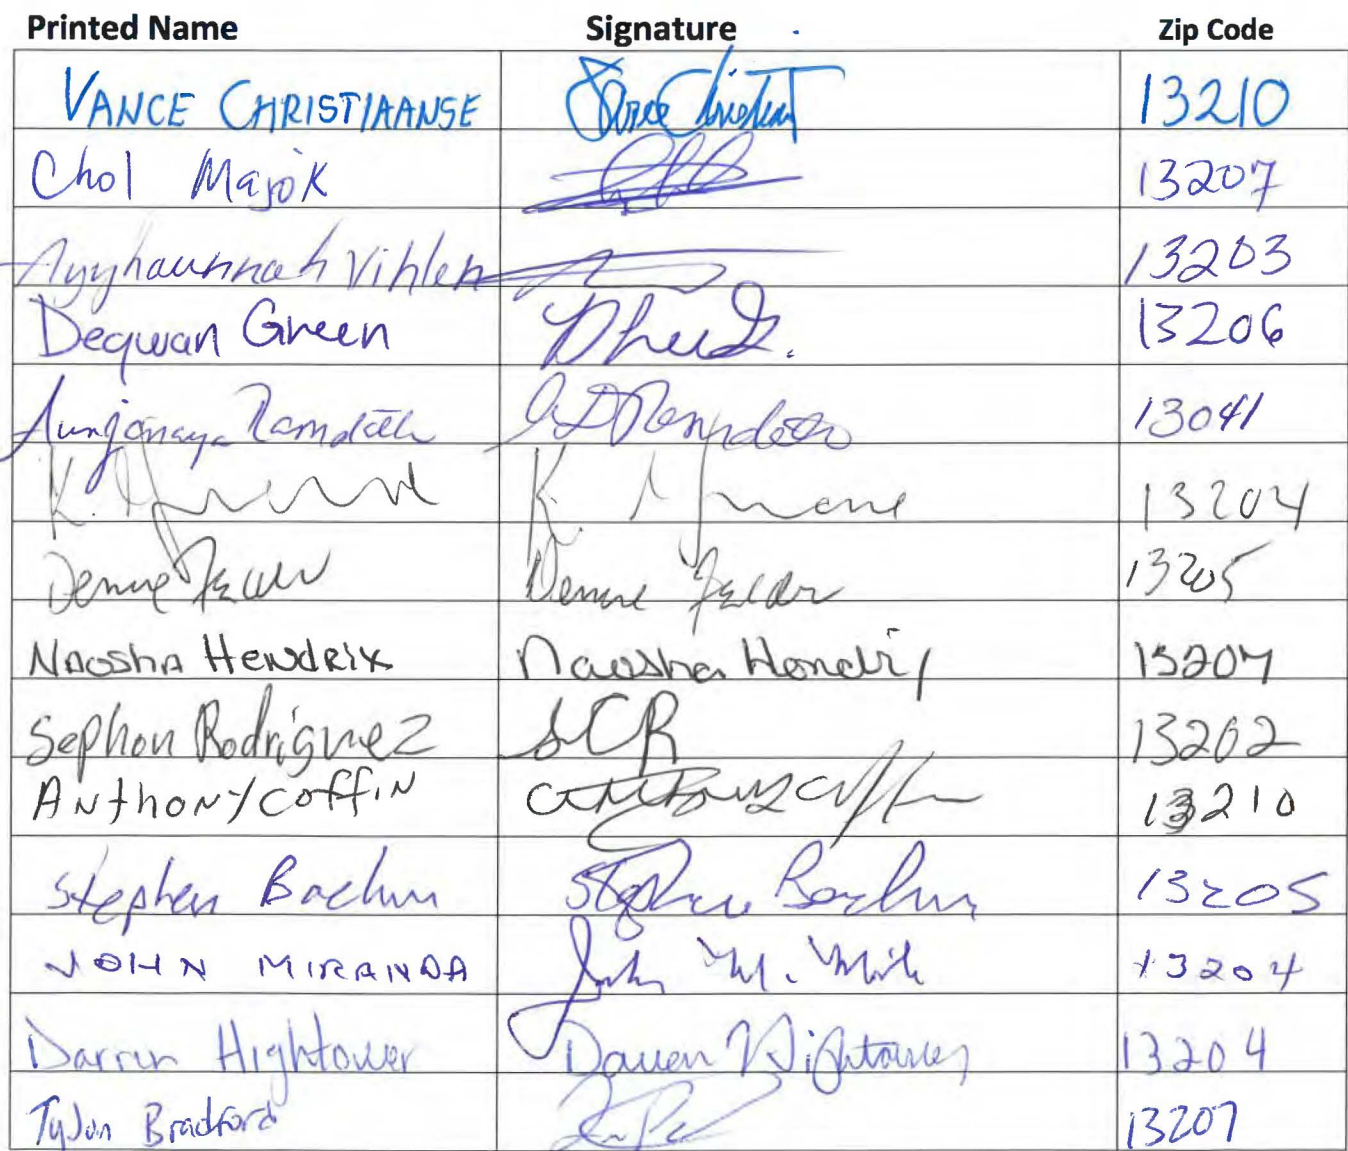 Printed Name Signature Zip Code
VANCE CHRISTIAANSE Vance Christiaanse 13210
Chol Majok 13207
Ayyhaunnah Vihlen 13203
Deqwan Green 13206
Aunjanaya Ramdath Ramdath 13041
K. K. 13204
Denise Felder Denise Felder 13205
NAOSHA HENDRIX Naosha Hendrix 13207
Sephon Rodriguez SCR 13202
ANthONY COffIN Anthony Coffin 13210
Stephen Bachun Stephen Bachun 13205
JOHN MIRANDA John M. 13204
Darren Hightower Darren Hightower 13204
TyJon Bradford 13207